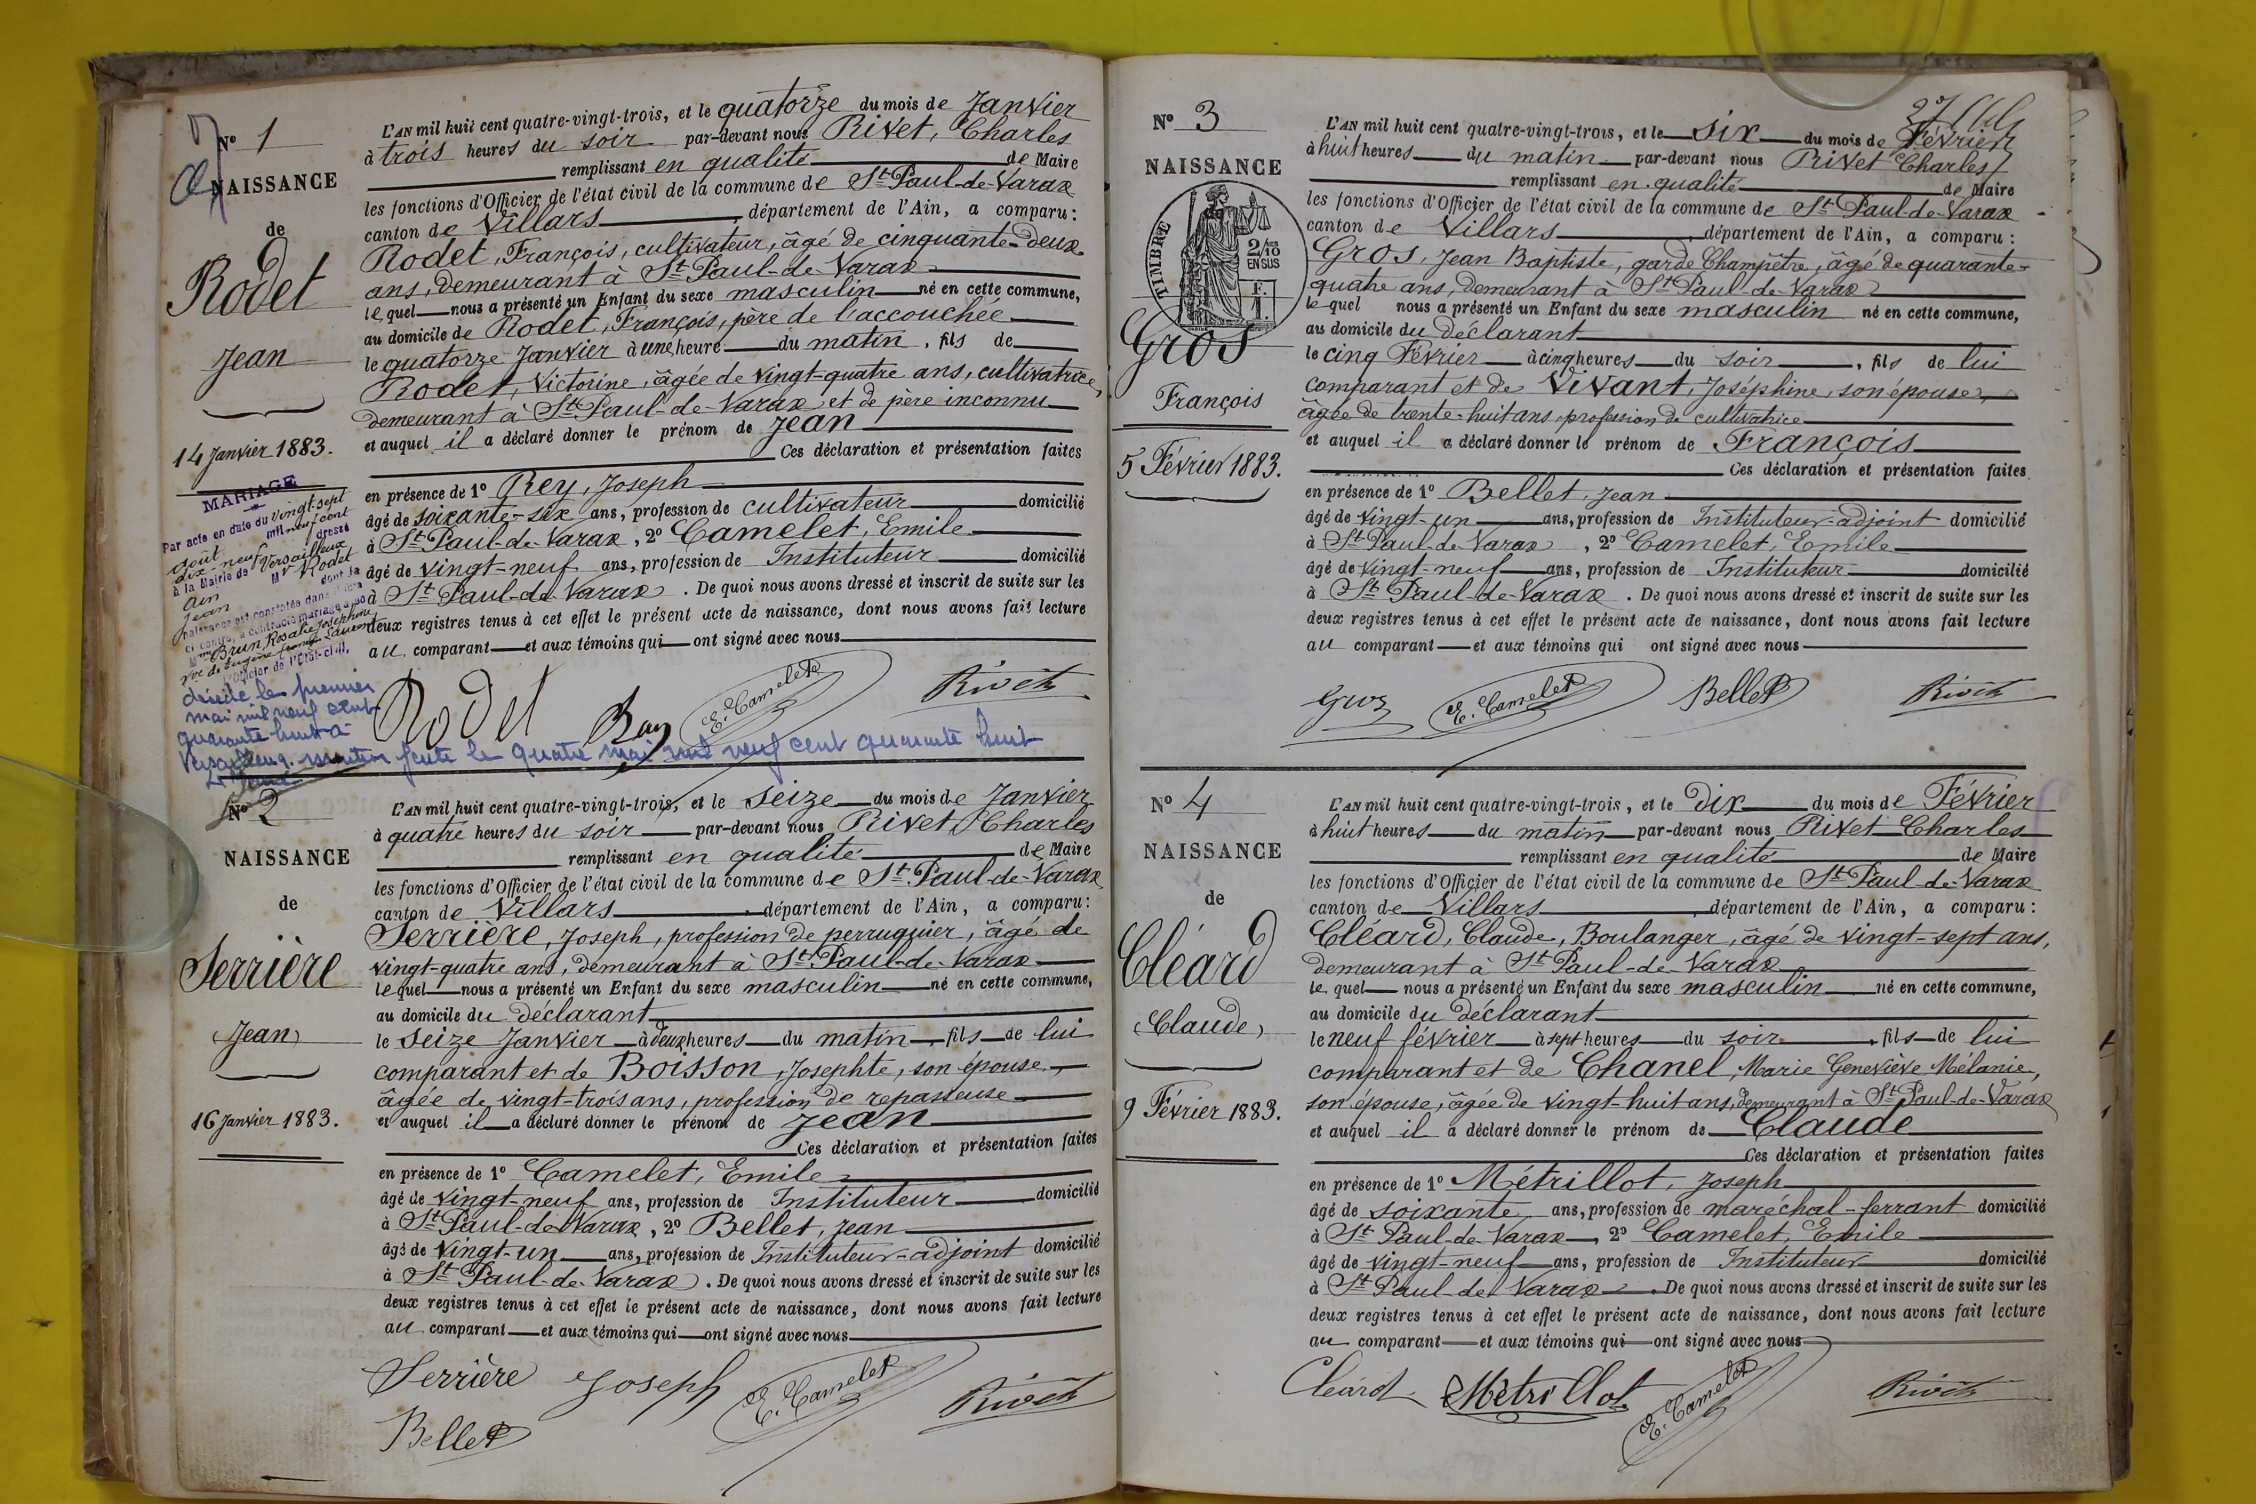 Nº 1
NAISSANCE
de
Rodet
Jean
14 Janvier 1883.
MARIAGE
Par acte en date du vingt-sept
août mil neuf cent
dix-neuf dressé
à la Mairie de Versailleux
Ain Mr Rodet
Jean dont la
naissance est constatée dans l'acte
ci contre, a contracté mariage avec
Mme Brun Rosalie Joséphine
vve de Eugène François Laurent
l'Officier de l'État-civil,
décédé le premier
mai mil neuf cent
quarante huit à
Versailleux. mention faite le quatre mai mil neuf cent quarante huit
L'AN mil huit cent quatre-vingt-trois, et le quatorze du mois de Janvier
à trois heures du soir par-devant nous Rivet, Charles
remplissant en qualité de Maire
les fonctions d'Officier de l'état civil de la commune de St Paul-de-Varax
canton de Villars, département de l'Ain, a comparu:
Rodet, François, cultivateur, âgé de cinquante-deux
ans, demeurant à St Paul-de-Varax
lequel nous a présenté un Enfant du sexe masculin né en cette commune,
au domicile de Rodet, François, père de l'accouchée
le quatorze Janvier à une heure du matin, fils de
Rodet, Victorine, âgée de vingt-quatre ans, cultivatrice,
demeurant à St Paul-de-Varax et de père inconnu
et auquel il a déclaré donner le prénom de Jean
Ces déclaration et présentation faites
en présence de 1º Rey, Joseph
âgé de soixante-six ans, profession de cultivateur domicilié
à St Paul-de-Varax, 2º Camelet, Emile
âgé de vingt-neuf ans, profession de Instituteur domicilié
à St Paul-de-Varax. De quoi nous avons dressé et inscrit de suite sur les
deux registres tenus à cet effet le présent acte de naissance, dont nous avons fait lecture
au comparant et aux témoins qui ont signé avec nous
Rodet Rey E. Camelet Rivet
Nº 2
NAISSANCE
de
Serrière
Jean
16 Janvier 1883.
L'AN mil huit cent quatre-vingt-trois, et le seize du mois de Janvier
à quatre heures du soir par-devant nous Rivet, Charles
remplissant en qualité de Maire
les fonctions d'Officier de l'état civil de la commune de St Paul-de-Varax
canton de Villars, département de l'Ain, a comparu:
Serrière, Joseph, profession de perruquier, âgé de
vingt-quatre ans, demeurant à St Paul-de-Varax
lequel nous a présenté un Enfant du sexe masculin né en cette commune,
au domicile du déclarant
le seize Janvier à deux heures du matin, fils de lui
comparant et de Boisson, Josephte, son épouse,
âgée de vingt-trois ans, profession de repasseuse
et auquel il a déclaré donner le prénom de Jean
Ces déclaration et présentation faites
en présence de 1º Camelet, Emile
âgé de vingt-neuf ans, profession de Instituteur domicilié
à St Paul-de-Varax, 2º Bellet, Jean
âgé de vingt-un ans, profession de Instituteur-adjoint domicilié
à St Paul-de-Varax. De quoi nous avons dressé et inscrit de suite sur les
deux registres tenus à cet effet le présent acte de naissance, dont nous avons fait lecture
au comparant et aux témoins qui ont signé avec nous
Serrière Joseph E. Camelet Rivet
Bellet
Nº 3
NAISSANCE
TIMBRE
2/10
EN SUS
F.
1.
Gros
François
5 Février 1883.
L'AN mil huit cent quatre-vingt-trois, et le six du mois de Février
à huit heures du matin par-devant nous Rivet Charles
remplissant en qualité de Maire
les fonctions d'Officier de l'état civil de la commune de St Paul-de-Varax
canton de Villars, département de l'Ain, a comparu:
Gros, Jean Baptiste, garde Champêtre, âgé de quarante-
quatre ans, demeurant à St Paul-de-Varax
lequel nous a présenté un Enfant du sexe masculin né en cette commune,
au domicile du déclarant
le cinq Février à cinq heures du soir, fils de lui
comparant et de Vivant, Joséphine, son épouse,
âgée de trente-huit ans, profession de cultivatrice
et auquel il a déclaré donner le prénom de François
Ces déclaration et présentation faites
en présence de 1º Bellet, Jean
âgé de vingt-un ans, profession de Instituteur-adjoint domicilié
à St Paul-de-Varax, 2º Camelet, Emile
âgé de vingt-neuf ans, profession de Instituteur domicilié
à St Paul-de-Varax. De quoi nous avons dressé et inscrit de suite sur les
deux registres tenus à cet effet le présent acte de naissance, dont nous avons fait lecture
au comparant et aux témoins qui ont signé avec nous
Gros E. Camelet Bellet Rivet
Nº 4
NAISSANCE
de
Cléard
Claude,
9 Février 1883.
L'AN mil huit cent quatre-vingt-trois, et le dix du mois de Février
à huit heures du matin par-devant nous Rivet Charles
remplissant en qualité de Maire
les fonctions d'Officier de l'état civil de la commune de St Paul-de-Varax
canton de Villars, département de l'Ain, a comparu:
Cléard, Claude, Boulanger, âgé de vingt-sept ans,
demeurant à St Paul-de-Varax
lequel nous a présenté un Enfant du sexe masculin né en cette commune,
au domicile du déclarant
le neuf février à sept heures du soir, fils de lui
comparant et de Chanel, Marie Geneviève Mélanie,
son épouse, âgée de vingt-huit ans, demeurant à St Paul-de-Varax
et auquel il a déclaré donner le prénom de Claude
Ces déclaration et présentation faites
en présence de 1º Métrillot, Joseph
âgé de soixante ans, profession de maréchal-ferrant domicilié
à St Paul-de-Varax, 2º Camelet, Emile
âgé de vingt-neuf ans, profession de Instituteur domicilié
à St Paul-de-Varax. De quoi nous avons dressé et inscrit de suite sur les
deux registres tenus à cet effet le présent acte de naissance, dont nous avons fait lecture
au comparant et aux témoins qui ont signé avec nous
Cléard Métrillot E. Camelet Rivet